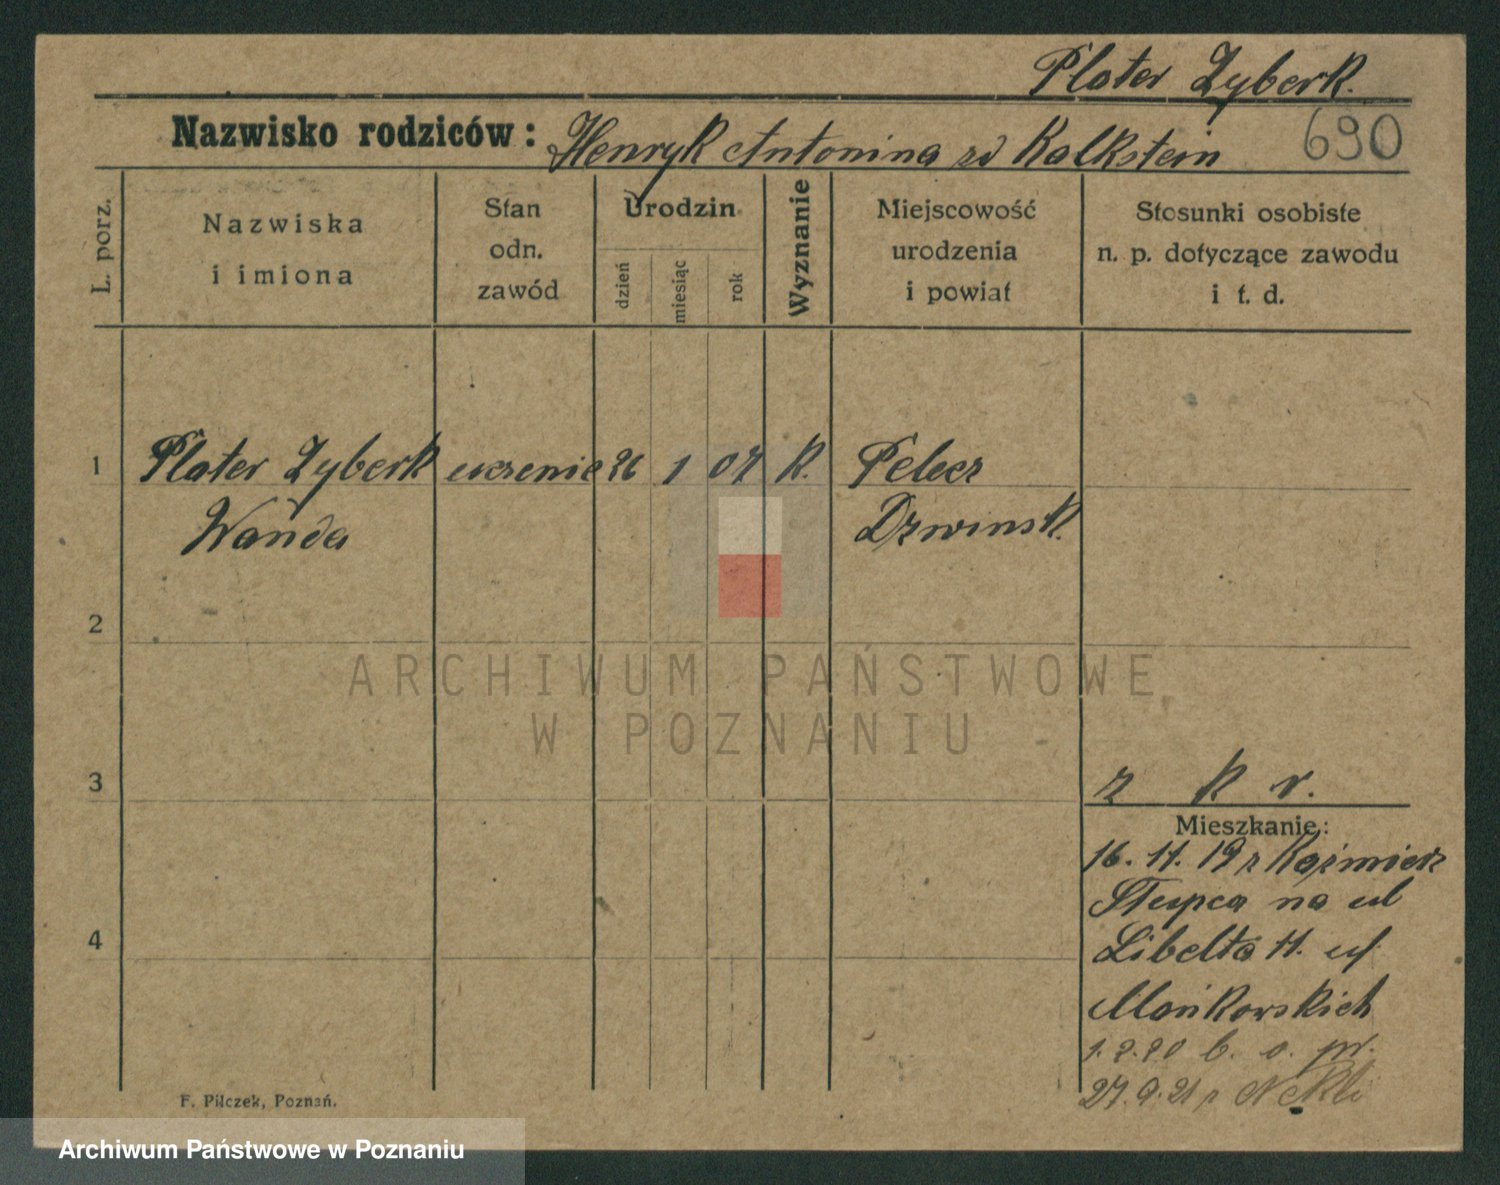 Plater Zyberk.
Nazwisko rodziców: Henryk Antonina zd Kalkstein 690
L. porz.
Nazwiska
i imiona
Stan
odn.
zawód
Urodzin
dzień
miesiąc
rok
Wyznanie
Miejscowość
urodzenia
i powiat
Stosunki osobiste
n. p. dotyczące zawodu
i t. d.
1 Plater Zyberk uczenic 26 1 07 k. Pelecz
Wanda Dzwinsk.
2
3
z k r.
Mieszkanie:
16. 11. 19 z Kaźmierz
Słupca na ul
Libelta 11. uf
Mańkowskich
1.2.20 b. o. pr.
27.9.21 z Nekli
4
F. Pilczek, Poznań.
ARCHIWUM PAŃSTWOWE
W POZNANIU
Archiwum Państwowe w Poznaniu